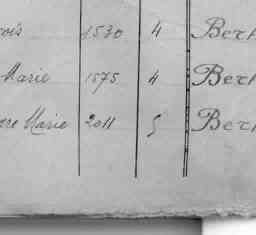 ois 1530 4 Bert
Marie 1575 4 Bert
re Marie 2011 5 Bert